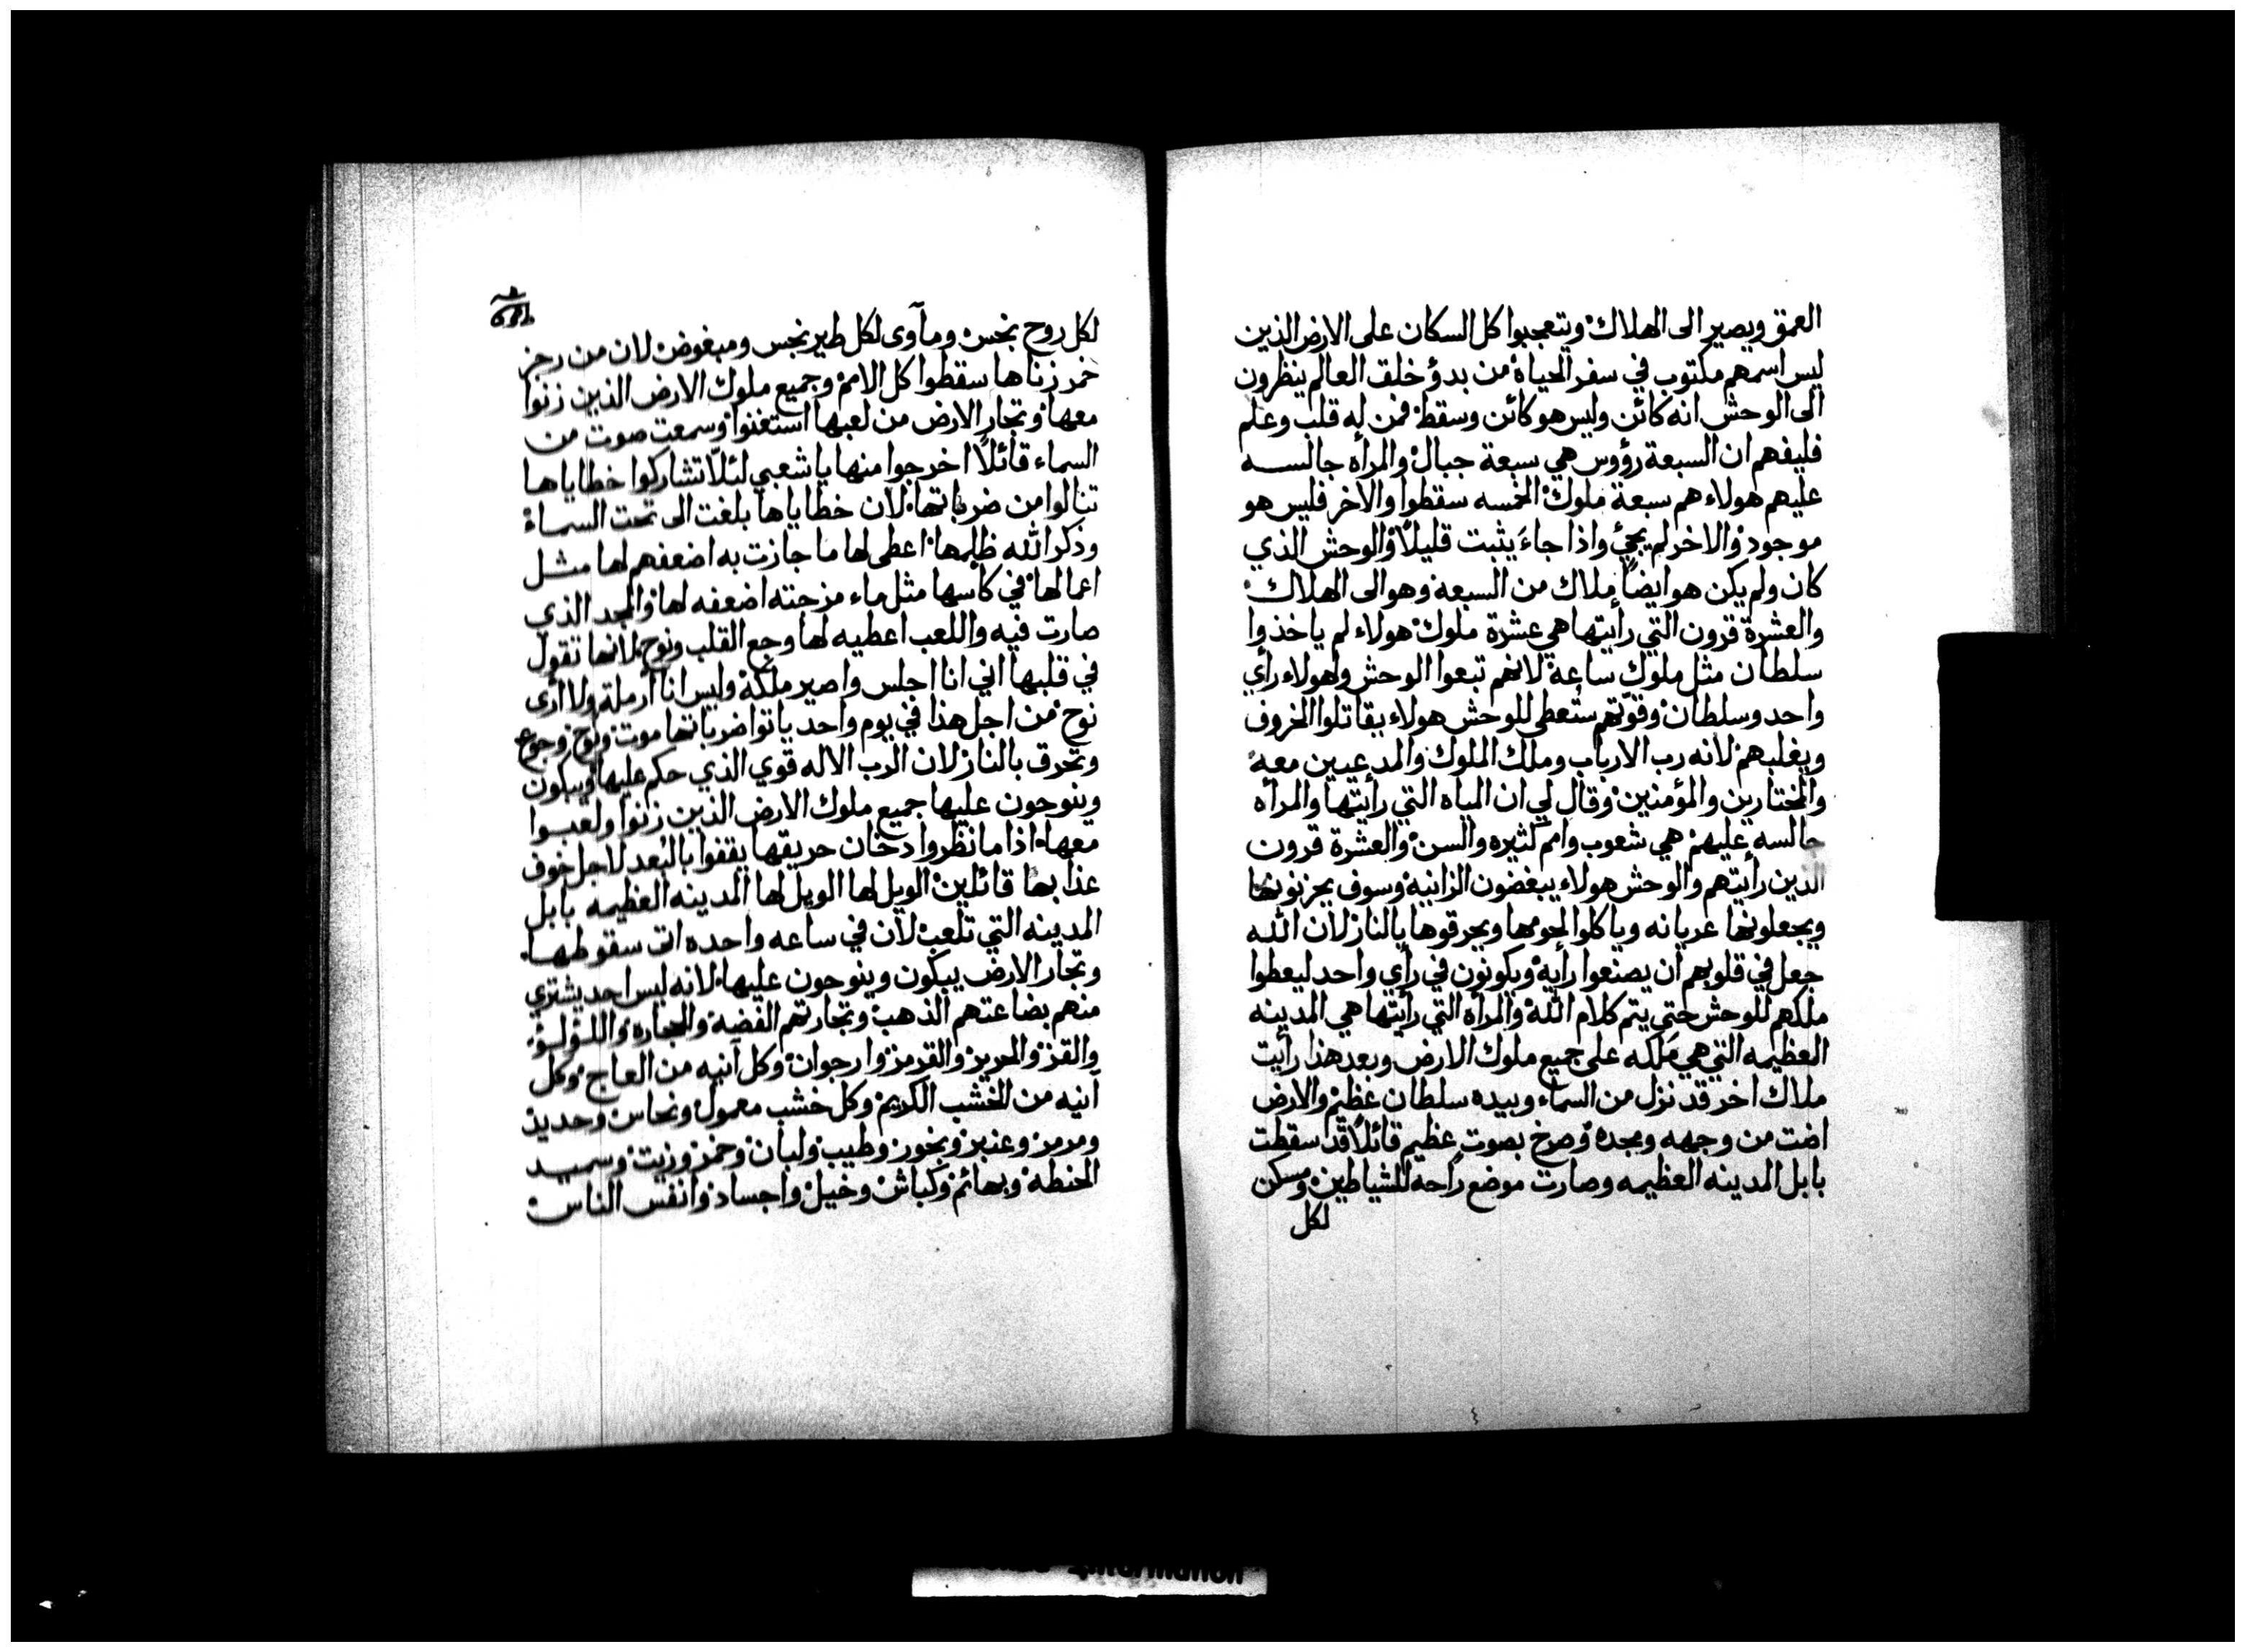 العمق ويصير الى الهلاك ويتعجبوا كل السكان على الارض الذين
ليس اسمهم مكتوب في سفر الحياة من بدؤ خلف العالم ينظرون
الى الوحش انه كائن وليس هو كائن وسقط فمن له قلب وعلم
فليفهم ان السبعة رؤوس هي سبعة جبال والمرأه جالسه
عليهم هولاء هم سبعة ملوك الخمسه سقطوا والاخر فليس هو
موجود والاخر لم يجئ واذا جاء يثبت قليلاً والوحش الذي
كان ولم يكن هو ايضاً ملاك من السبعة وهو الى الهلاك
والعشرة قرون التي رأيتها هي عشرة ملوك هولاء لم ياخذوا
سلطان مثل ملوك ساعة لانهم تبعوا الوحش ولهولاء رأي
واحد وسلطان وقوتهم ستعطى للوحش هولاء يقاتلوا الخروف
ويغلبهم لانه رب الارباب وملك الملوك والمدعيين معه
والمختارين والمؤمنين وقال لي ان المياه التي رأيتها والمرأه
جالسه عليهم هي شعوب وامم كثيره والسن والعشرة قرون
الذين رأيتهم والوحش هولاء يبغضون الزانية وسوف يحزنونها
ويجعلونها عريانه وياكلوا لحومها ويحرقوها بالنار لان الله
جعل في قلوبهم ان يصنعوا رأيه ويكونون في رأي واحد ليعطوا
ملكهم للوحش حتى يتم كلام الله والمرأه التي رأيتها هي المدينه
العظيمه التي هي مَلكه على جميع ملوك الارض وبعد هذا رأيت
ملاك اخر قد نزل من السماء وبيده سلطان عظيم والارض
اضت من وجهه ومجده وصرخ بصوت عظيم قائلاً قد سقطت
بابل المدينه العظيمه وصارت موضع راحة للشياطين ومسكن
لكل
لكل روح نجس ومأوى لكل طير نجس ومبغوض لان من رجز
خمر زناها سقطوا كل الامم وجميع ملوك الارض الذين زنوا
معها وتجار الارض من لعبها استغنوا وسمعت صوت من
السماء قائلاً اخرجوا منها يا شعبي لئلّا تشاركوا خطاياها
تنالوا من ضرباتها لان خطاياها بلغت الى تحت السماء
وذكر الله ظلمها اعطى لها ما جازت به اضعفهم لها مثل
اعمالها في كأسها مثل ماء مزجته اضعفه لها والمجد الذي
صارت فيه واللعب اعطيه لها وجع القلب ونوح لانها تقول
في قلبها اني انا اجلس واصير ملكة وليس انا أرملة ولا أرى
نوح من اجل هذا في يوم واحد ياتوا ضرباتها موت ونوح وجوع
وتحرق بالنار لان الرب الاله قوي الذي حكم عليها ويبكون
وينوحون عليها جميع ملوك الارض الذين زنوا ولعبوا
معها اذا ما نظروا دخان حريقها يقفوا بالبُعد لاجل خوف
عذابها قائلين الويل لها الويل لها المدينه العظيمه بابل
المدينه التي تلعب لان في ساعه واحده اتى سقوطها
وتجار الارض يبكون وينوحون عليها لانه ليس احد يشتري
منهم بضاعتهم الذهب وتجارتهم الفضه والحجاره واللؤلؤ
والقز والحرير والقرمز وارجوان وكل آنيه من العاج وكل
آنيه من الخشب الكريم وكل خشب معمول ونحاس وحديد
ومرمر وعنبر وبخور وطيب ولبان وخمر وزيت وسميد
الحنطه وبهائم وكباش وخيل واجساد وانفس الناس